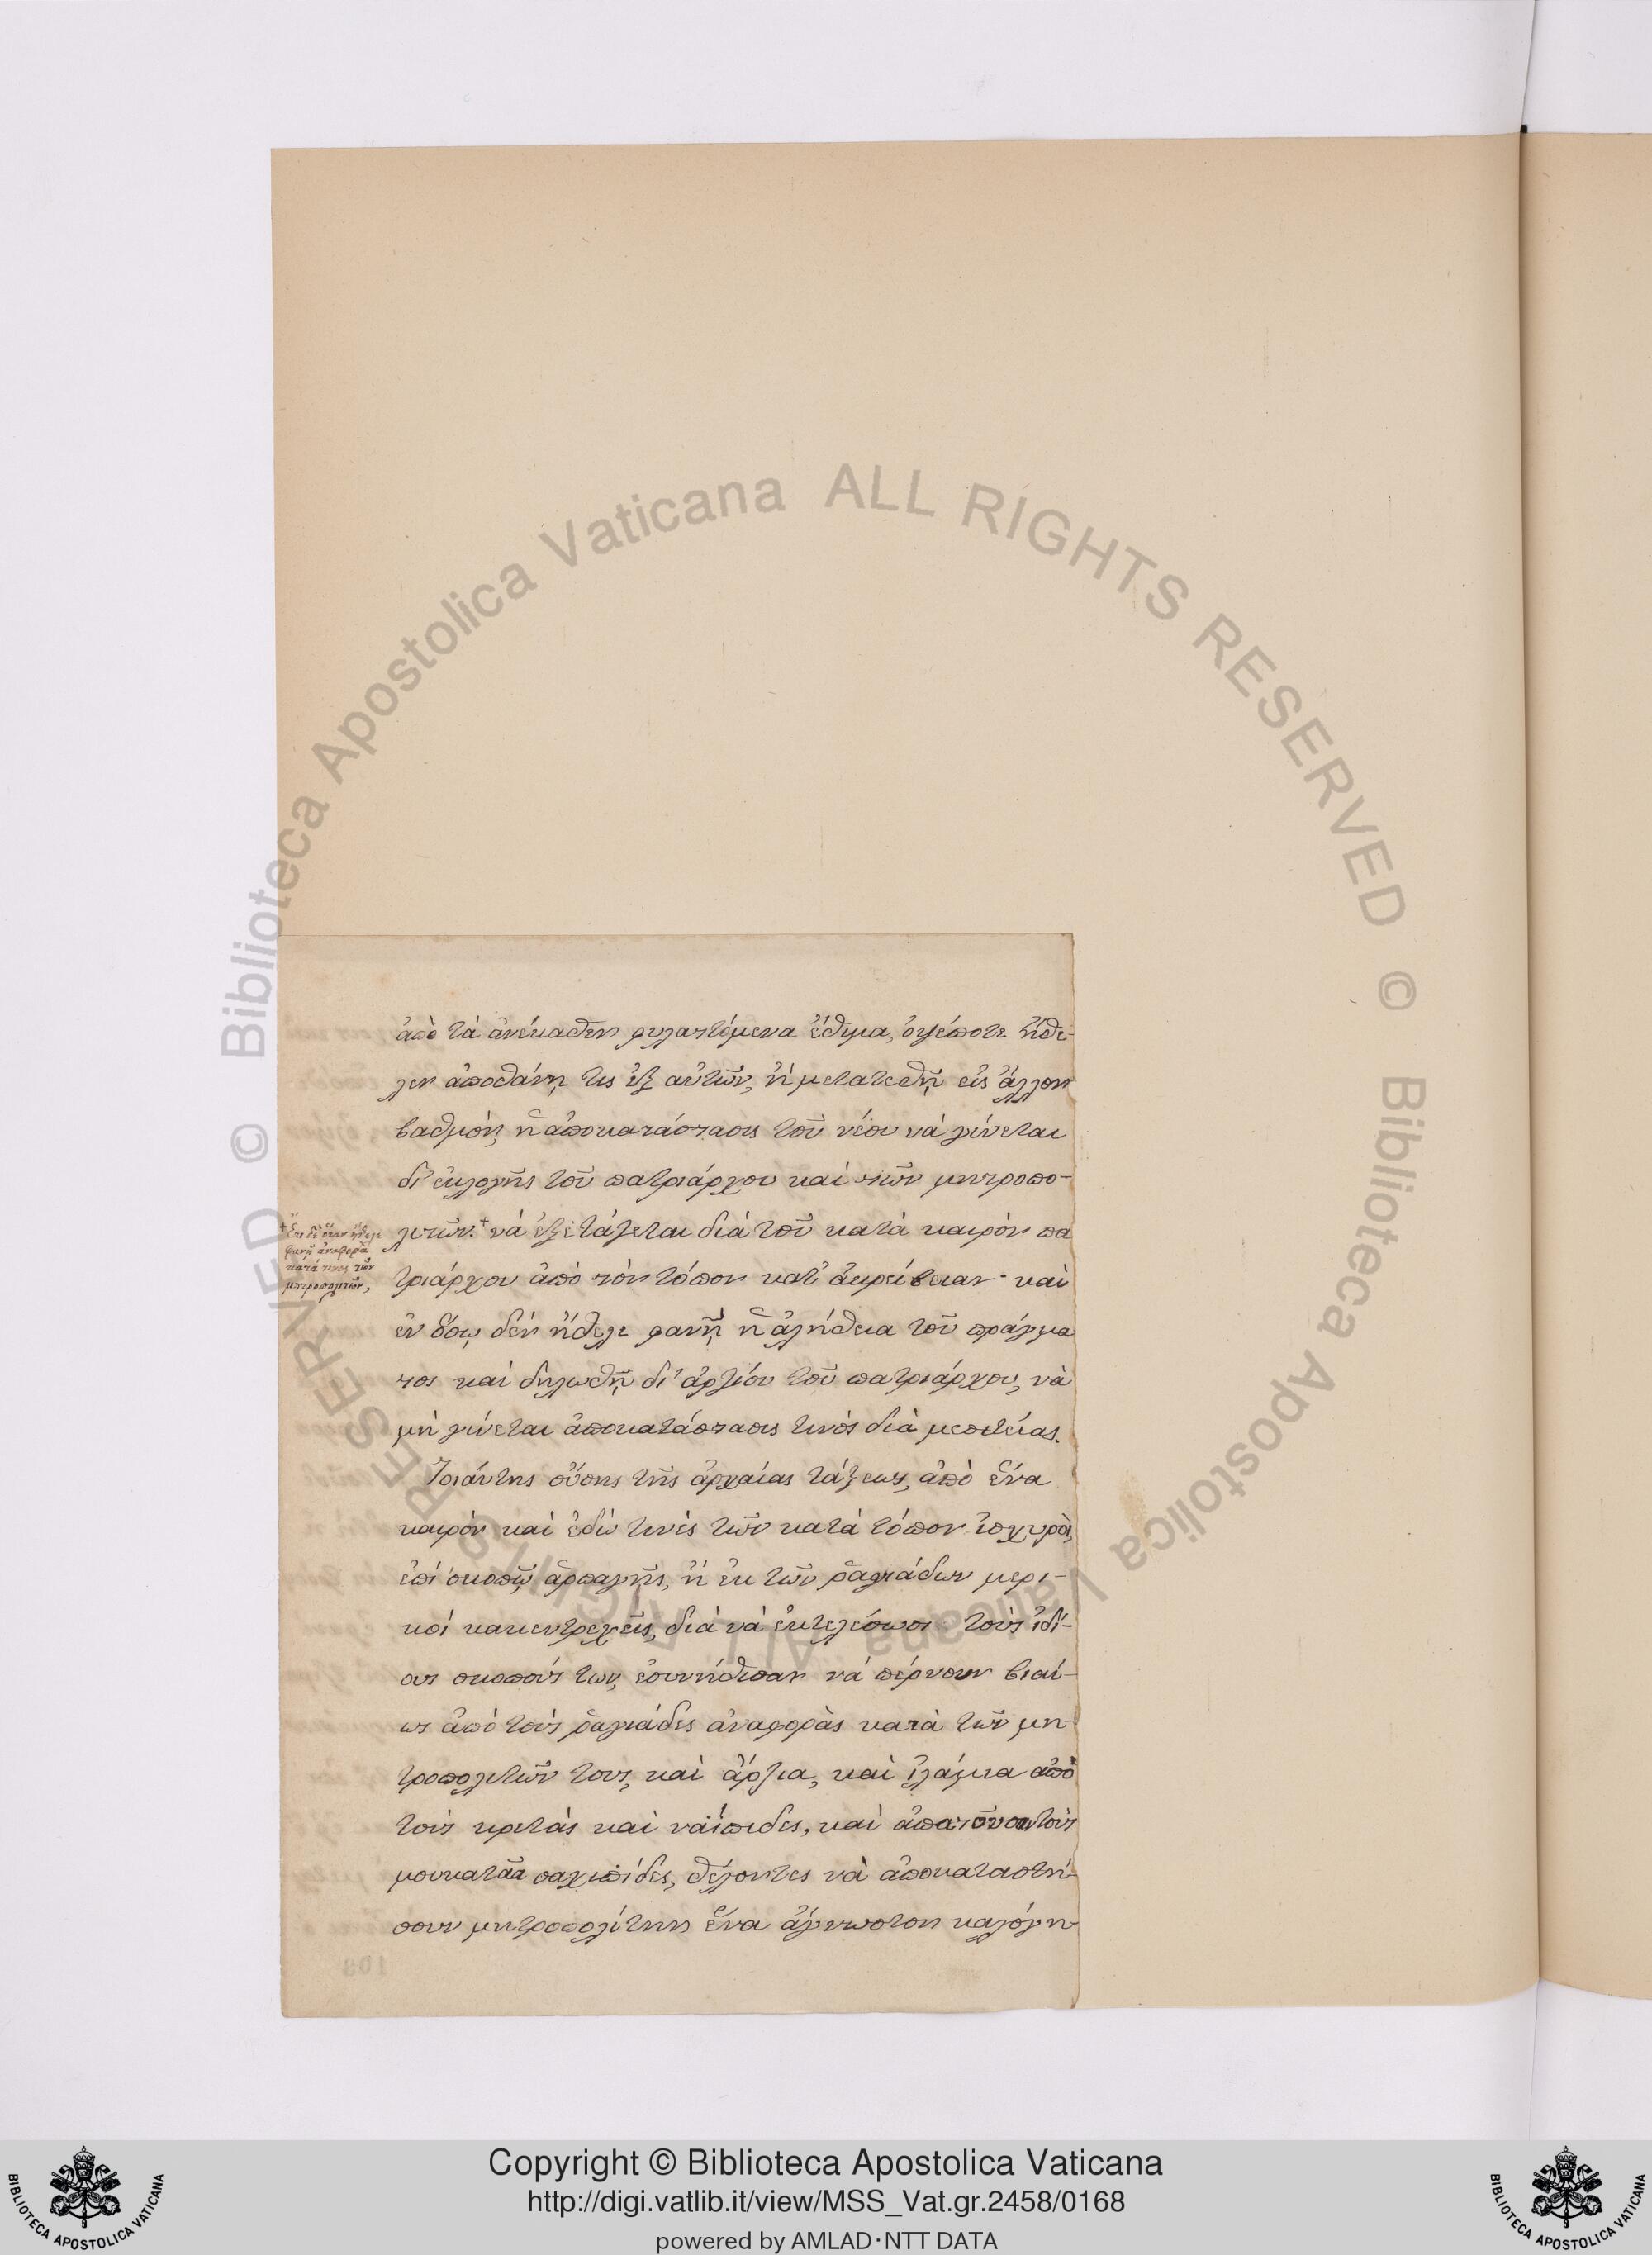 ἀπὸ τὰ ἀνέκαθεν φυλαττόμενα ἔθιμα, ὁψέποτε ἤθε-
λεν ἀποθάνῃ τις ἐξ αὐτῶν, ἢ μετατεθῇ εἰς ἄλλον
βαθμόν, ἡ ἀποκατάστασις τοῦ νέου νὰ γίνεται
δι' ἐκλογῆς τοῦ πατριάρχου καὶ τῶν μητροπο-
λιτῶν.+ νὰ ἐξετάζεται διὰ τοῦ κατὰ καιρὸν πα
τριάρχου ἀπὸ τὸν τόπον κατ' ἀκρίβειαν· καὶ
ἐν ὅσῳ δὲν ἤθελε φανῇ ἡ ἀλήθεια τοῦ πράγμα
τος καὶ δηλωθῇ δι' ἀρζίου τοῦ πατριάρχου, νὰ
μὴ γίνεται ἀποκατάστασις τινὸς διὰ μεσιτείας.
Τοιάυτης οὔσης τῆς ἀρχαίας τάξεως, ἀπὸ ἕνα
καιρὸν καὶ ἐδὼ τινὲς τῶν κατὰ τόπον ἰσχυρὸι,
ἐπὶ σκοπῷ ἁρπαγῆς, ἢ ἐκ τῶν ῥαγιάδων μερι-
κοὶ κακεντρεχεῖς, διὰ νὰ ἐκτελέσωσι τοὺς ἰδί-
ους σκοπούς των, ἐσυνήθισαν νὰ πέρνουν βιαί-
ως ἀπὸ τοὺς ῥαγιάδες ἀναφορὰς κατὰ τῶν μη-
τροπολιτῶν τους, καὶ ἄρζια, καὶ ἰλάμια ἀπὸ
τοὺς κριτὰς καὶ ναΐπιδες, καὶ ἀπατοῦν τοὺς
μουκατὰα σαχιπίδες, θέλοντες νὰ ἀποκαταστή-
σουν μητροπολίτην ἕνα ἄγνωστον καλόγη-
+ Ἔτι δὲ ὅταν ἤθελε
φανῇ ἀναφορὰ
κατά τινος τῶν
μητροπολιτῶν,
Copyright © Biblioteca Apostolica Vaticana
http://digi.vatlib.it/view/MSS_Vat.gr.2458/0168
powered by AMLAD·NTT DATA
BIBLIOTECA APOSTOLICA VATICANA
BIBLIOTECA APOSTOLICA VATICANA
© Biblioteca Apostolica Vaticana ALL RIGHTS RESERVED © Biblioteca Apostolica Vaticana ALL RIGHTS RESERVED